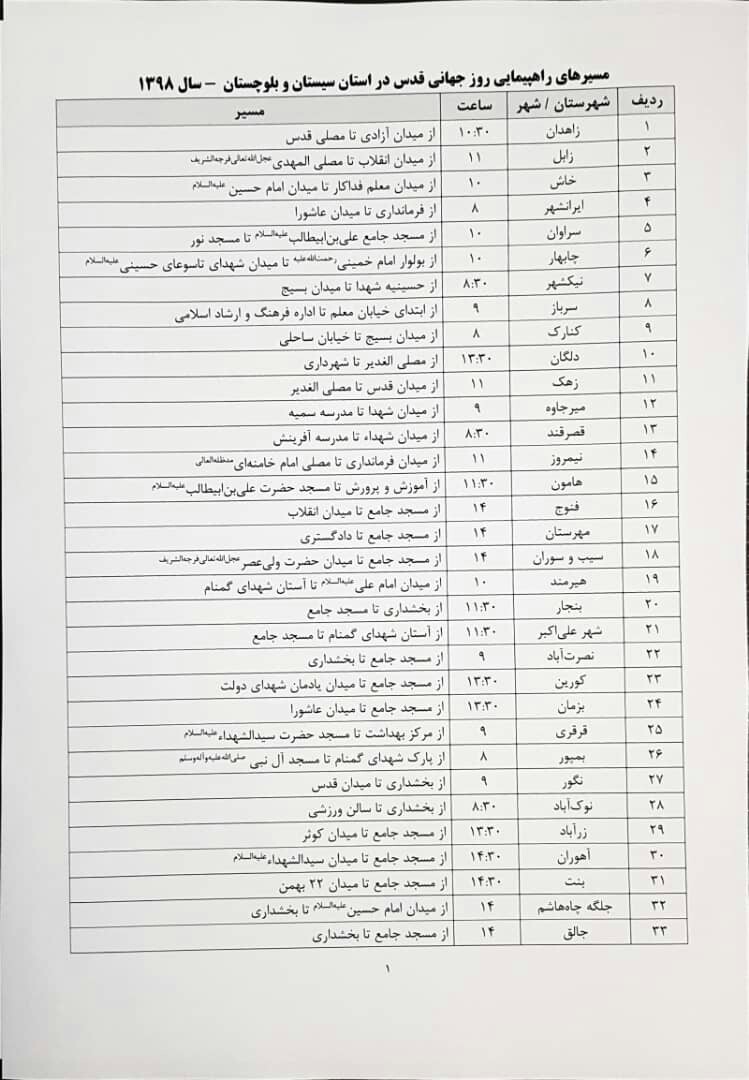 مسیرهای راهپیمایی روز جهانی قدس در استان سیستان و بلوچستان - سال ۱۳۹۸
ردیف شهرستان / شهر ساعت مسیر
۱ زاهدان ۱۰:۳۰ از میدان آزادی تا مصلی قدس
۲ زابل ۱۱ از میدان انقلاب تا مصلی المهدی عجل‌الله‌تعالی‌فرجه‌الشریف
۳ خاش ۱۰ از میدان معلم فداکار تا میدان امام حسین علیه‌السلام
۴ ایرانشهر ۸ از فرمانداری تا میدان عاشورا
۵ سراوان ۱۰ از مسجد جامع علی‌بن‌ابیطالب علیه‌السلام تا مسجد نور
۶ چابهار ۱۰ از بولوار امام خمینی رحمت‌الله‌علیه تا میدان شهدای تاسوعای حسینی علیه‌السلام
۷ نیکشهر ۸:۳۰ از حسینیه شهدا تا میدان بسیج
۸ سرباز ۹ از ابتدای خیابان معلم تا اداره فرهنگ و ارشاد اسلامی
۹ کنارک ۸ از میدان بسیج تا خیابان ساحلی
۱۰ دلگان ۱۳:۳۰ از مصلی الغدیر تا شهرداری
۱۱ زهک ۱۱ از میدان قدس تا مصلی الغدیر
۱۲ میرجاوه ۹ از میدان شهدا تا مدرسه سمیه
۱۳ قصرقند ۸:۳۰ از میدان شهداء تا مدرسه آفرینش
۱۴ نیمروز ۱۱ از میدان فرمانداری تا مصلی امام خامنه‌ای مدظله‌العالی
۱۵ هامون ۱۱:۳۰ از آموزش و پرورش تا مسجد حضرت علی‌بن‌ابیطالب علیه‌السلام
۱۶ فنوج ۱۴ از مسجد جامع تا میدان انقلاب
۱۷ مهرستان ۱۴ از مسجد جامع تا دادگستری
۱۸ سیب و سوران ۱۴ از مسجد جامع تا میدان حضرت ولی‌عصر عجل‌الله‌تعالی‌فرجه‌الشریف
۱۹ هیرمند ۱۰ از میدان امام علی علیه‌السلام تا آستان شهدای گمنام
۲۰ بنجار ۱۱:۳۰ از بخشداری تا مسجد جامع
۲۱ شهر علی‌اکبر ۱۱:۳۰ از آستان شهدای گمنام تا مسجد جامع
۲۲ نصرت‌آباد ۹ از مسجد جامع تا بخشداری
۲۳ کورین ۱۳:۳۰ از مسجد جامع تا میدان یادمان شهدای دولت
۲۴ بزمان ۱۳:۳۰ از مسجد جامع تا میدان عاشورا
۲۵ قرقری ۹ از مرکز بهداشت تا مسجد حضرت سیدالشهداء علیه‌السلام
۲۶ بمپور ۸ از پارک شهدای گمنام تا مسجد آل نبی صلی‌الله‌علیه‌وآله‌وسلم
۲۷ نگور ۹ از بخشداری تا میدان قدس
۲۸ نوک‌آباد ۸:۳۰ از بخشداری تا سالن ورزشی
۲۹ زرآباد ۱۳:۳۰ از مسجد جامع تا میدان کوثر
۳۰ آهوران ۱۴:۳۰ از مسجد جامع تا میدان سیدالشهداء علیه‌السلام
۳۱ بنت ۱۴:۳۰ از مسجد جامع تا میدان ۲۲ بهمن
۳۲ جلگه چاه‌هاشم ۱۴ از میدان امام حسین علیه‌السلام تا بخشداری
۳۳ جالق ۱۴ از مسجد جامع تا بخشداری
۱